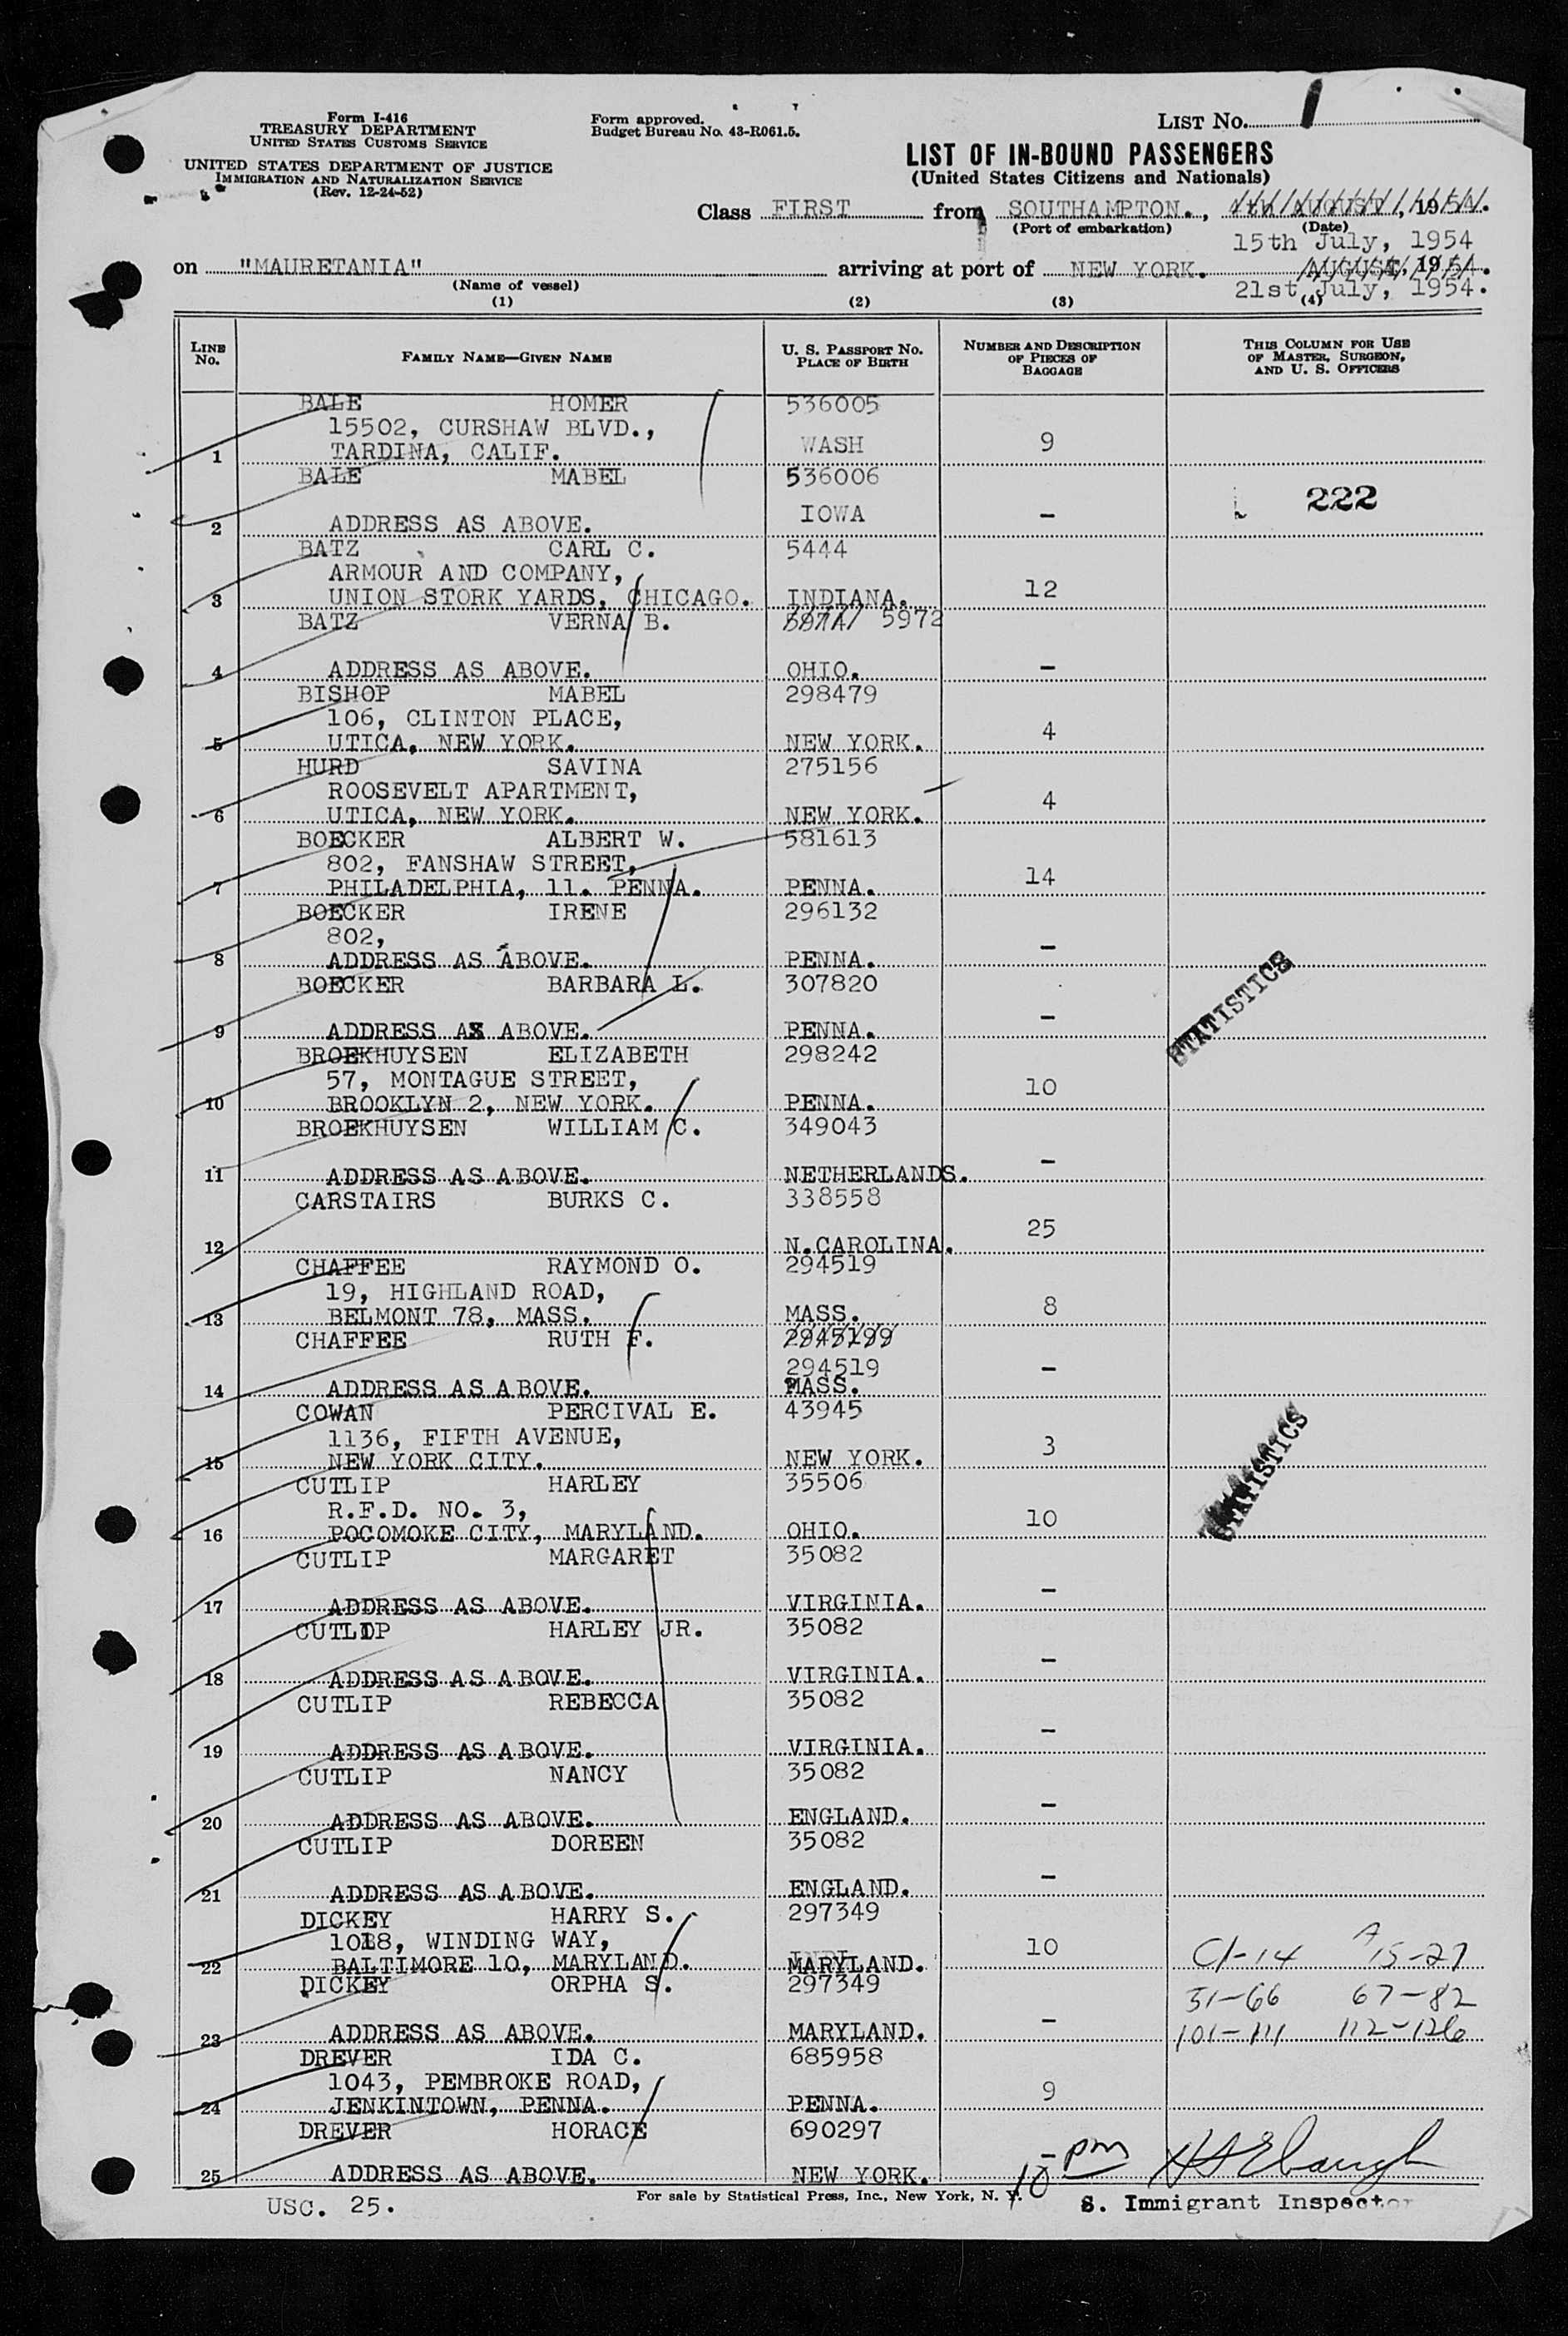 Form I-416
TREASURY DEPARTMENT
UNITED STATES CUSTOMS SERVICE
UNITED STATES DEPARTMENT OF JUSTICE
IMMIGRATION AND NATURALIZATION SERVICE
(Rev. 12-24-52)
Form approved.
Budget Bureau No. 43-R061.5.
LIST No. 1
LIST OF IN-BOUND PASSENGERS
(United States Citizens and Nationals)
Class FIRST from SOUTHAMPTON., AUGUST, 1954.
(Port of embarkation) (Date)
15th July, 1954
on "MAURETANIA" arriving at port of NEW YORK. AUGUST, 1954.
(Name of vessel)
21st July, 1954.
(1) (2) (3) (4)
LINE No. FAMILY NAME—GIVEN NAME U. S. PASSPORT No. PLACE OF BIRTH NUMBER AND DESCRIPTION OF PIECES OF BAGGAGE THIS COLUMN FOR USE OF MASTER, SURGEON, AND U. S. OFFICERS
BALE HOMER 536005
15502, CURSHAW BLVD.,
WASH 9
1 TARDINA, CALIF.
BALE MABEL 536006
222
IOWA -
2 ADDRESS AS ABOVE.
BATZ CARL C. 5444
ARMOUR AND COMPANY,
12
3 UNION STORK YARDS, CHICAGO. INDIANA.
BATZ VERNA B. 5974 5972
4 ADDRESS AS ABOVE. OHIO. -
BISHOP MABEL 298479
106, CLINTON PLACE,
5 UTICA, NEW YORK. NEW YORK. 4
HURD SAVINA 275156
ROOSEVELT APARTMENT,
6 UTICA, NEW YORK. NEW YORK. 4
BOECKER ALBERT W. 581613
802, FANSHAW STREET,
7 PHILADELPHIA, 11. PENNA. PENNA. 14
BOECKER IRENE 296132
802,
8 ADDRESS AS ABOVE. PENNA. -
BOECKER BARBARA L. 307820
STATISTICS
9 ADDRESS AS ABOVE. PENNA. -
BROEKHUYSEN ELIZABETH 298242
57, MONTAGUE STREET,
10 BROOKLYN 2, NEW YORK. PENNA. 10
BROEKHUYSEN WILLIAM C. 349043
11 ADDRESS AS ABOVE. NETHERLANDS. -
CARSTAIRS BURKS C. 338558
12 N.CAROLINA. 25
CHAFFEE RAYMOND O. 294519
19, HIGHLAND ROAD,
13 BELMONT 78, MASS. MASS. 8
CHAFFEE RUTH F. 2945199
294519 -
14 ADDRESS AS ABOVE. MASS.
COWAN PERCIVAL E. 43945
1136, FIFTH AVENUE,
15 NEW YORK CITY. NEW YORK. 3
STATISTICS
CUTLIP HARLEY 35506
R.F.D. NO. 3,
16 POCOMOKE CITY, MARYLAND. OHIO. 10
CUTLIP MARGARET 35082
17 ADDRESS AS ABOVE. VIRGINIA. -
CUTLIP HARLEY JR. 35082
18 ADDRESS AS ABOVE. VIRGINIA. -
CUTLIP REBECCA 35082
19 ADDRESS AS ABOVE. VIRGINIA. -
CUTLIP NANCY 35082
20 ADDRESS AS ABOVE. ENGLAND. -
CUTLIP DOREEN 35082
21 ADDRESS AS ABOVE. ENGLAND. -
DICKEY HARRY S. 297349
1018, WINDING WAY,
22 BALTIMORE 10, MARYLAND. MARYLAND. 10 C1-14 A15-27
DICKEY ORPHA S. 297349
51-66 67-82
23 ADDRESS AS ABOVE. MARYLAND. - 101-111 112-126
DREVER IDA C. 685958
1043, PEMBROKE ROAD,
24 JENKINTOWN, PENNA. PENNA. 9
DREVER HORACE 690297
25 ADDRESS AS ABOVE. NEW YORK. - 10 pm
USC. 25.
For sale by Statistical Press, Inc., New York, N. Y.
S. Immigrant Inspector